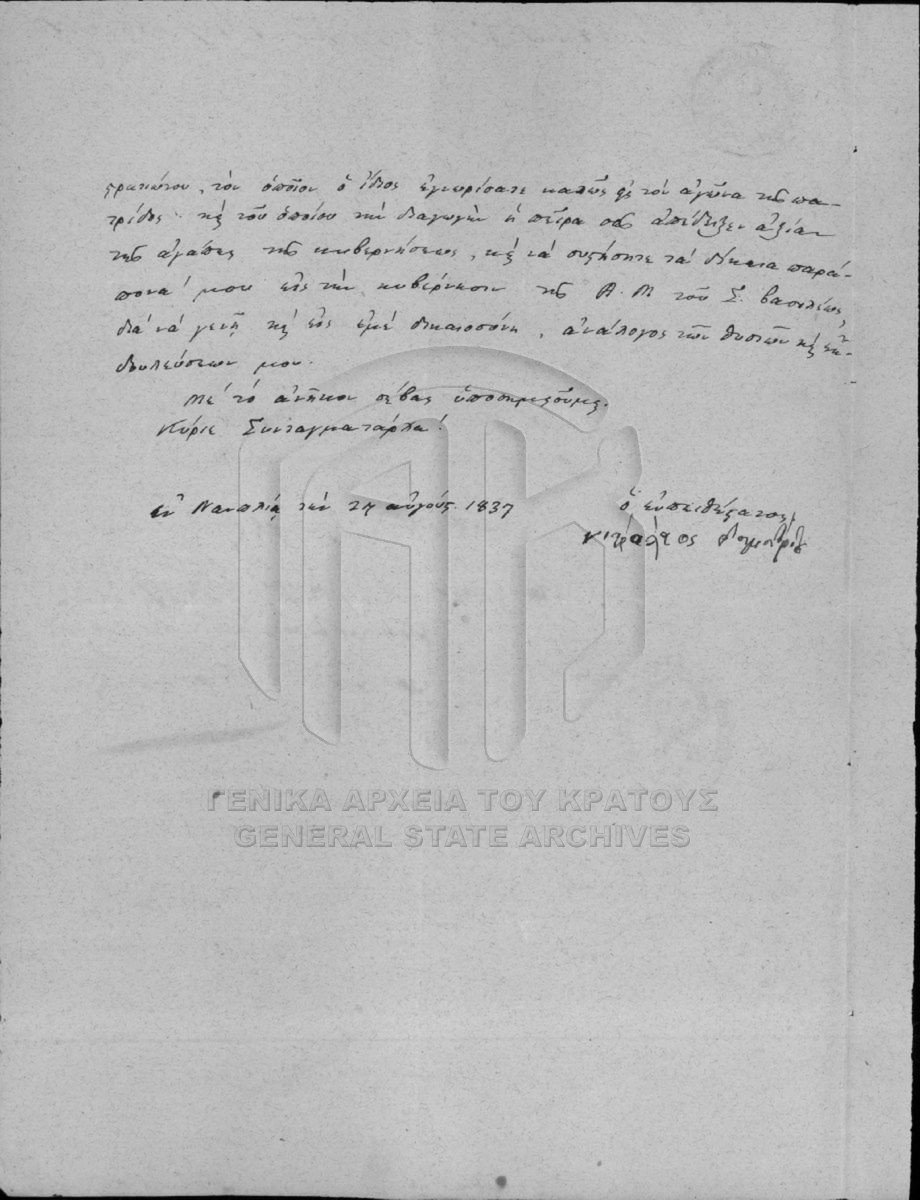 στρατιώτου, τὸν ὁποῖον ὁ ἴδιος ἐγνωρίσατε καλῶς εἰς τὸν ἀγῶνα τῆς πα-
τρίδος· κỳ τοῦ ὁποίου τὴν διαγωγὴν ἡ πεῖρα σας ἀπέδειξεν ἀξίαν
τῆς ἀγάπης τῆς κυβερνήσεως, κỳ νὰ συστήσητε τὰ δίκαια παρά-
πονά μου εἰς τὴν κυβέρνησιν τῆς Α. Μ τοῦ Σ. βασιλέως,
διὰ νὰ γενῇ κỳ εἰς ἐμὲ δικαιοσύνη, ἀνάλογος τῶν θυσιῶν κỳ ἐκ-
δουλεύσεών μου.
Μὲ τὸ ἀνῆκον σέβας ὑποσημειοῦμαι.
Κύριε Συνταγματάρχα!
ἐν Ναυπλίᾳ τὴν αὐγούς. 1837
ὁ εὐπειθέστατος
ΓΕΝΙΚΑ ΑΡΧΕΙΑ ΤΟΥ ΚΡΑΤΟΥΣ
GENERAL STATE ARCHIVES